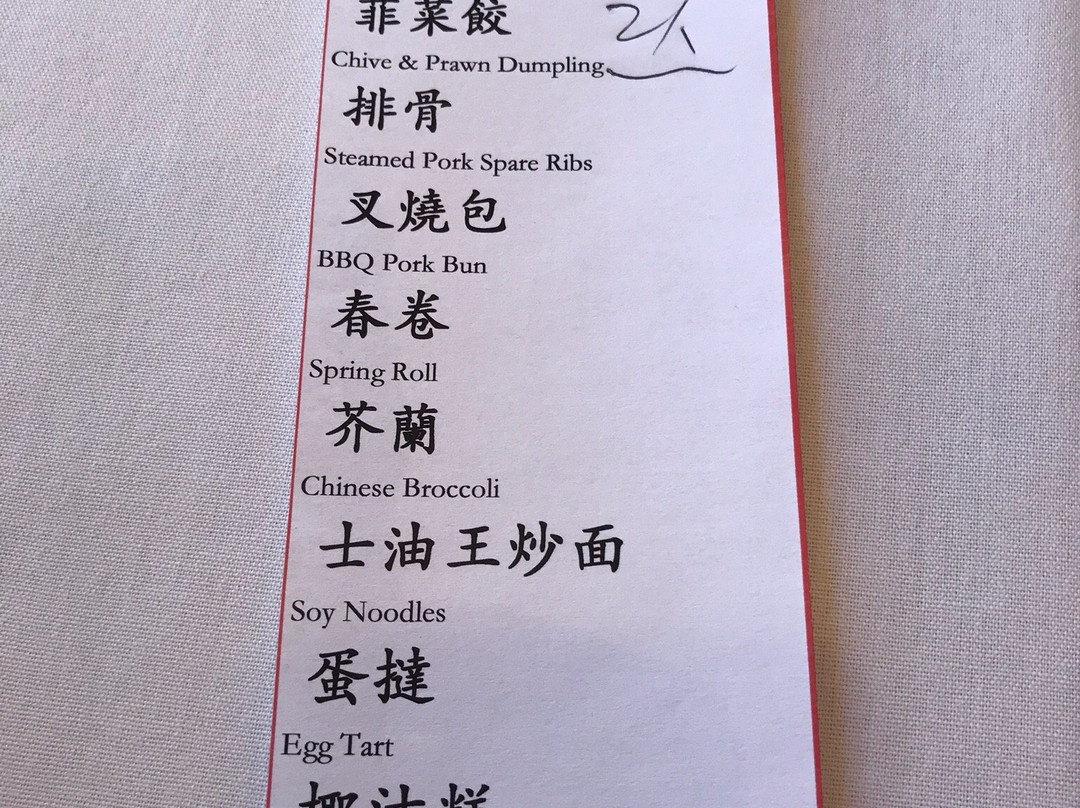 韮菜餃
Chive & Prawn Dumpling
排骨
Steamed Pork Spare Ribs
叉燒包
BBQ Pork Bun
春卷
Spring Roll
芥蘭
Chinese Broccoli
士油王炒面
Soy Noodles
蛋撻
Egg Tart
椰汁糕